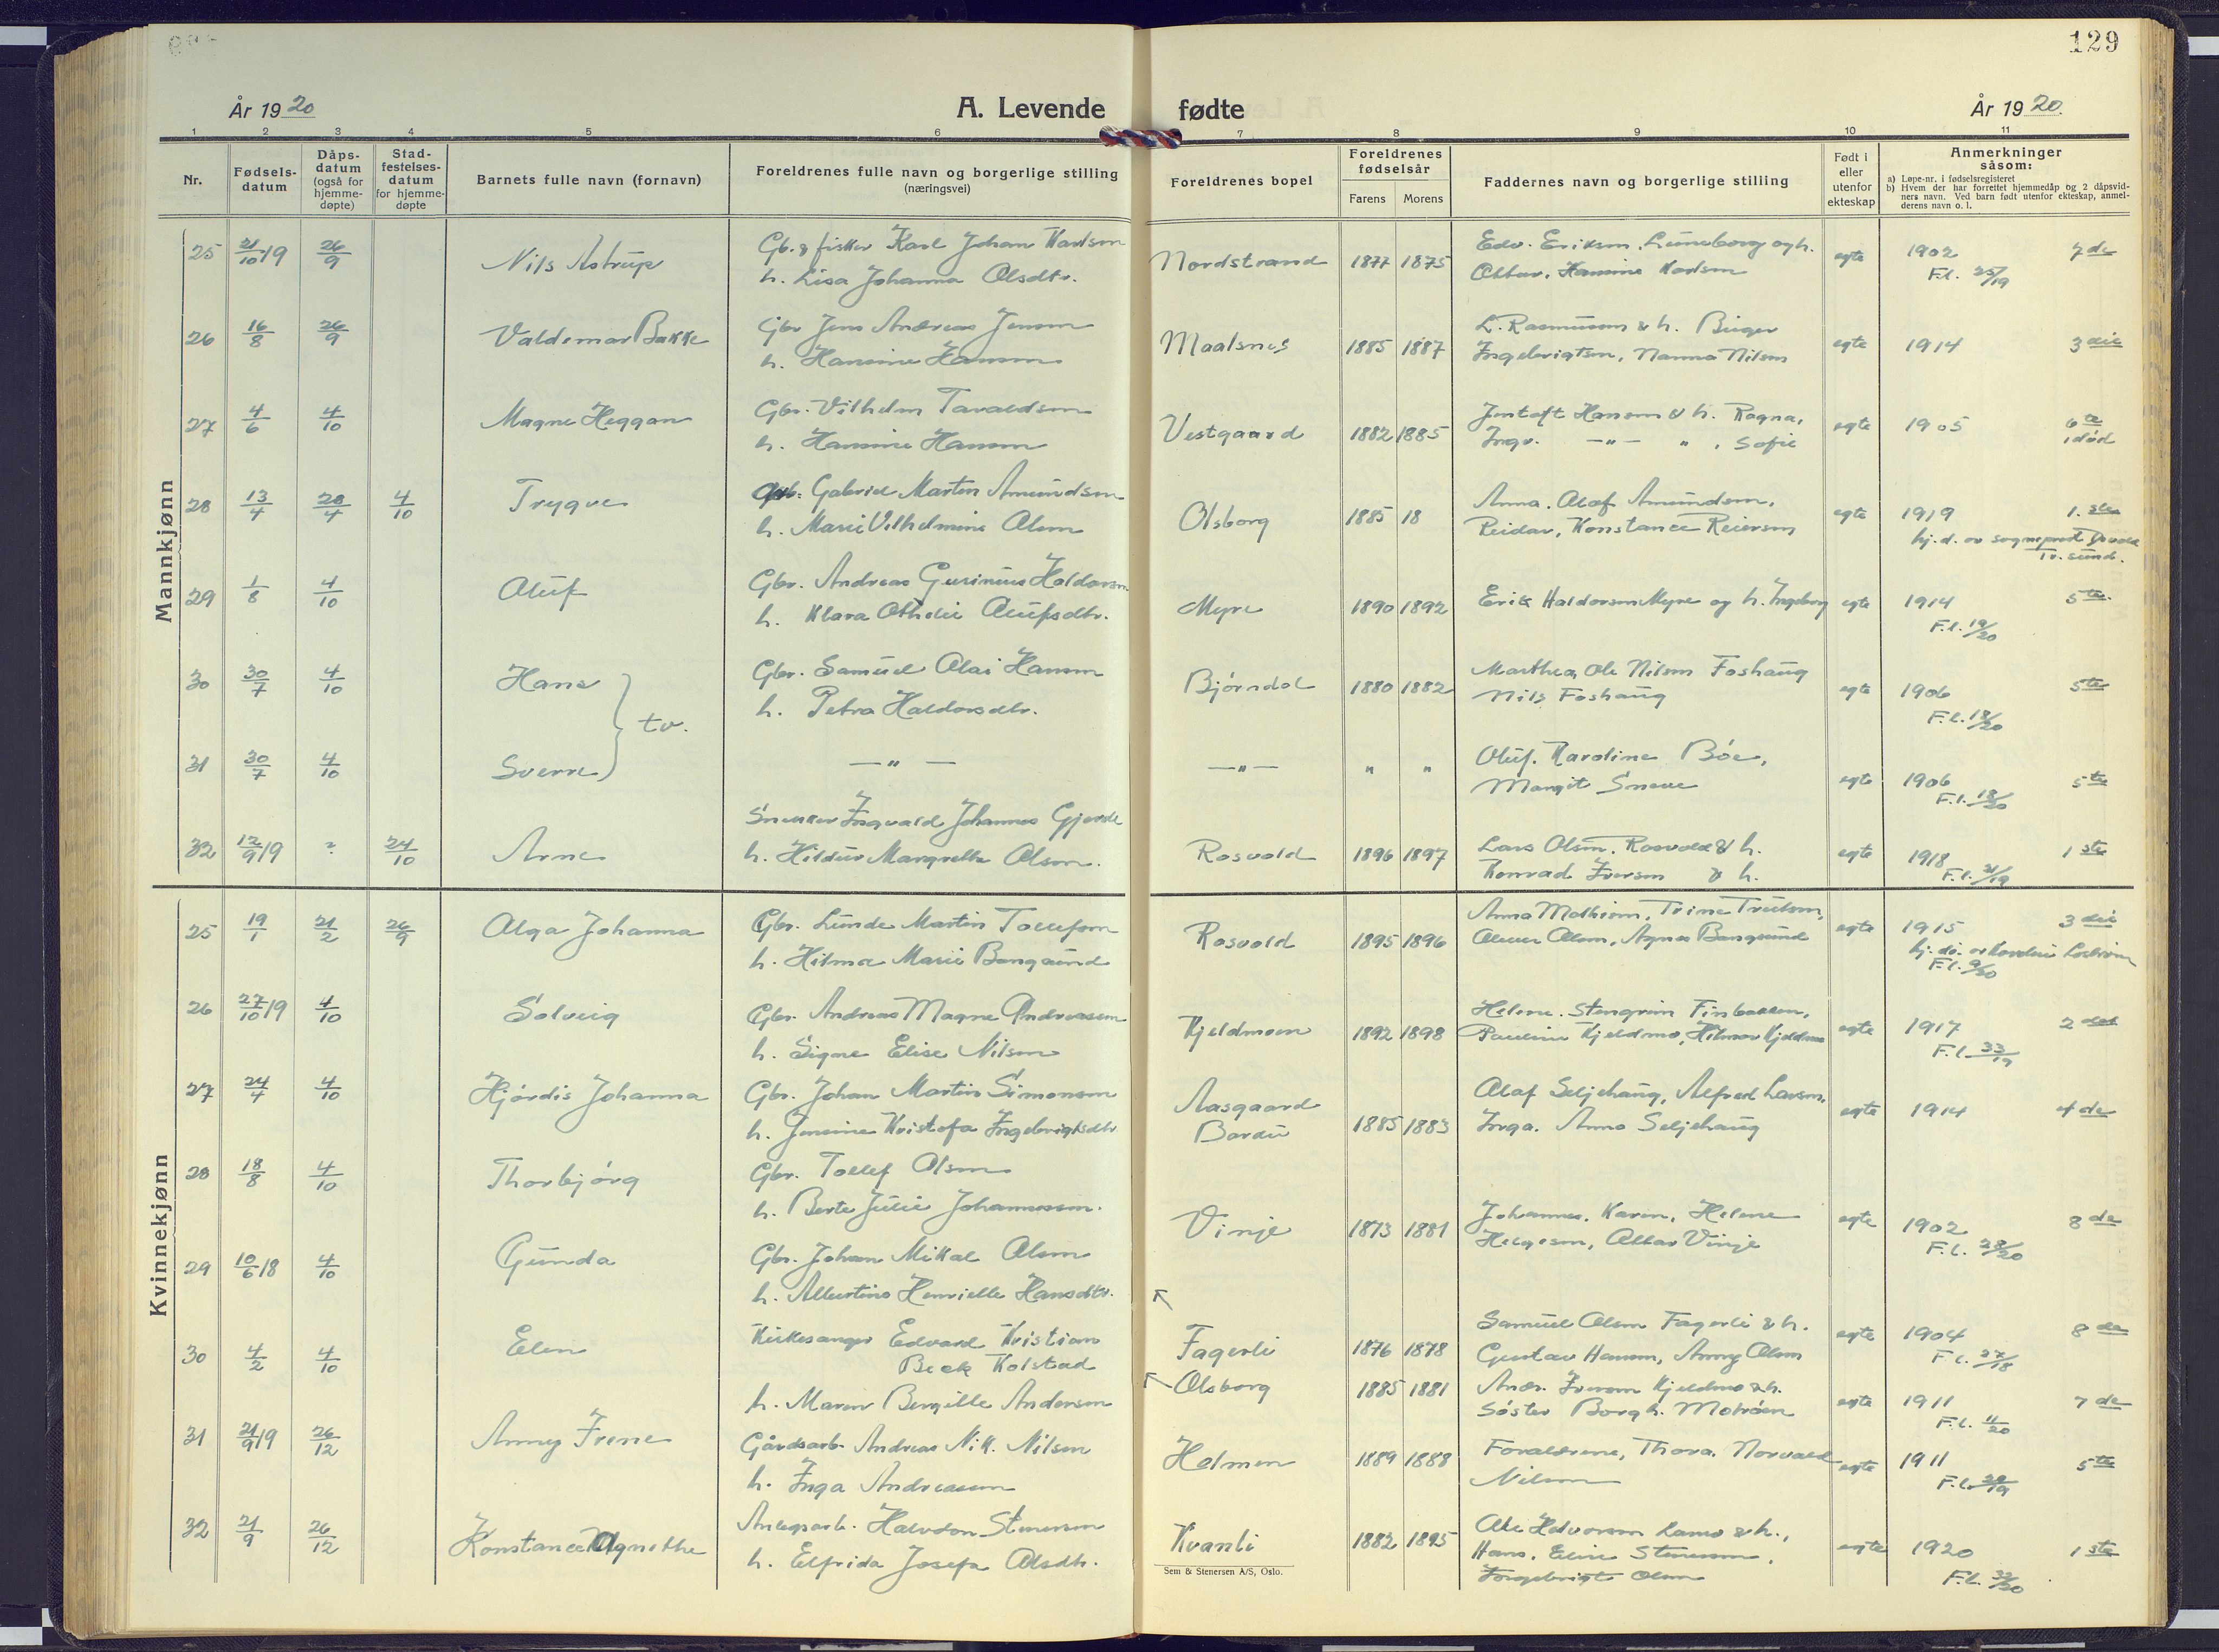 129
År 1920
A. Levende fødte
År 1920.
1 2 3 4 5 6 7 8 9 10 11
Nr.
Fødsels-
datum
Dåps-
datum
(også for
hjemme-
døpte)
Stad-
festelses-
datum
for hjemme-
døpte
Barnets fulle navn (fornavn)
Foreldrenes fulle navn og borgerlige stilling
(næringsvei)
Foreldrenes bopel
Foreldrenes
fødselsår
Farens Morens
Faddernes navn og borgerlige stilling
Født i
eller
utenfor
ekteskap
Anmerkninger
såsom:
a) Løpe-nr. i fødselsregisteret
b) Hvem der har forrettet hjemmedåp og 2 dåpsvid-
ners navn. Ved barn født utenfor ekteskap, anmel-
derens navn o. l.
Mannkjønn
25 21/10 19 26/9 Nils Astrup Gb. & fisker Karl Johan Karlsen Nordstrand 1877 1875 Edv. Eriksen, Luneborg og h. egte 1902 7de
h. Lisa Johanna Olsdtr. Ottar, Hansine Karlsen F.l. 25/19
26 16/8 26/9 Valdemar Bakke Gbr Jens Andreas Jensen Maalsnes 1885 1887 L. Rasmussen & h. Birger egte 1914 3die
h. Hansine Hansen Ingebrigtsen, Nanna Nilsen
27 4/6 4/10 Magne Heggan Gbr. Vilhelm Tavaldsen Vestgaard 1882 1885 Jentoft Hansen & h. Ragna, egte 1905 6te
h. Hansine Hansen Ingv. —"— " , Sofie 1 død
28 13/4 28/4 4/10 Trygve Gabriel Martin Amundsen Olsborg 1885 18 Anna. Olaf Amundsen, egte 1919 1.ste
h. Marie Vilhelmine Olsen Reidar, Konstance Reiersen hj. d. av sogneprest
Tr. sund.
29 1/8 4/10 Oluf Gbr. Andreas Gurinius Haldorsen Myre 1890 1892 Erik Haldorsen Myre og h. Ingeborg egte 1914 5te
h. Klara Othelie Olufsdtr. F.l. 19/20
30 30/7 4/10 Hans Gbr. Samuel Olai Hansen Bjørndal 1880 1882 Marthea, Ole Nilsen Foshaug egte 1906 5te
tv. h. Petra Haldorsdtr. Nils Foshaug F.l. 18/20
31 30/7 4/10 Sverre —"— —"— " " Oluf, Karoline Bøe, egte 1906 5te
Margit Sneve F.l. 18/20
32 12/9 19 ? 24/10 Arne Snekker Ingvald Johannes Gjerde Rosvold 1896 1897 Lars Olsen, Rosvold & h. egte 1918 1ste
h. Hildur Margrethe Olsen. Konrad Iversen & h. F.l. 21/19
Kvinnekjønn
25 19/1 21/2 26/9 Olga Johanna Gbr. Lunde Martin Tollefsen Rosvold 1895 1896 Anna Mathisen, Trine Trulsen, egte 1915 3die
h. Hilma Marie Bangsund Oluer Olsen, Agnes Bangsund hj. dø. av
F.l. 9/20
26 27/10 19 4/10 Solveig Gbr. Andreas Magne Andreassen Kjeldmoen 1892 1898 Helene, Stengrim Finbakken, egte 1917 2det
h. Signe Elise Nilsen Pauline Kjeldmo, Hilmar Kjeldmo F.l. 33/19
27 24/4 4/10 Hjørdis Johanna Gbr. Johan Martin Simonsen Aasgaard 1885 1883 Olaf Seljehaug, Alfred Larsen, egte 1914 4de
h. Jensine Kristofa Ingebrigtsdtr Bardu Inga. Anna Seljehaug
28 18/8 4/10 Thorbjørg Gbr. Tollef Olsen Vinje 1873 1881 Johannes, Karen, Helene egte 1902 8de
h. Berte Julie Johannessen. Helgesen, Ottar Vinje F.l. 28/20
29 10/6 18 4/10 Gunda Gbr. Johan Mikal Olsen Fagerli 1876 1878 Samuel Olsen Fagerli & h. egte 1904 8de
h. Albertine Henrielle Hansdtr. Gustav Hansen, Anny Olsen F.l. 27/18
30 4/2 4/10 Elen Kirkesanger Edvard Kristian Olsborg 1885 1881 Andr. Iversen Kjeldmo & h. egte 1911 7de
Beck Kolstad Søster Borgh. Motrøen F.l. 11/20
h. Maren Bergitte Andersen
31 21/9 19 26/12 Anny Irene Gårdsarb. Andreas Nik. Nilsen Holmen 1889 1888 Forældrene, Thora. Norvald egte 1911 5te
h. Inga Andreassen Nilsen F.l. 28/19
32 21/9 26/12 Konstance Agnethe Anlegsarb. Halvdan Stenersen Kvanli 1882 1895 Ole Halvorsen Ramo & h., egte 1920 1ste
h. Elfrida Josefa Olsdtr. Hans, Eline Stenersen, F.l. 32/20
Ingebrigt Olsen
Sem & Stenersen A/S, Oslo.